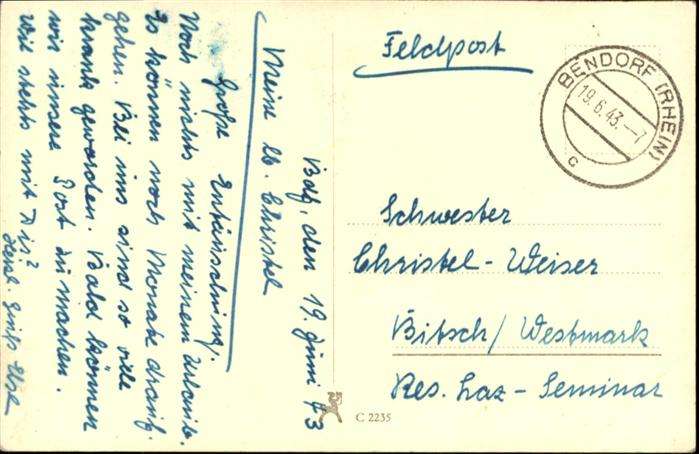 Bdf, den 19. Juni 43
Meine lb. Christel
Große Entäuschung.
Noch nichts mit meinem Urlaub.
Es können noch Monate draufg.
gehen. Bei uns sind so viele
krank geworden. Bald können
wir unsere Post zu machen.
Wie stehts mit Dir?
Herzl. Grüß Ilse
Feldpost
BENDORF (RHEIN)
19.6.43.-7
c
Schwester
Christel-Weiser
Bitsch/Westmark
Res. Laz-Seminar
C 2235